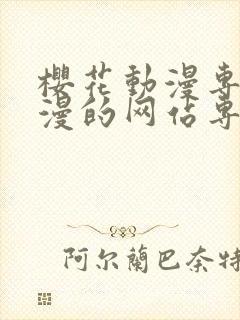 櫻花動漫專
漫的网佔專
阿尔蘭巴奈特